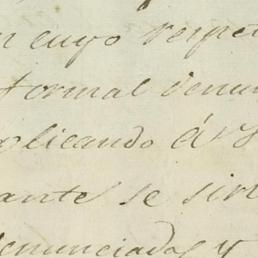 n cuyo respet
formal denun
plicando á v
ante se sir
denunciados y